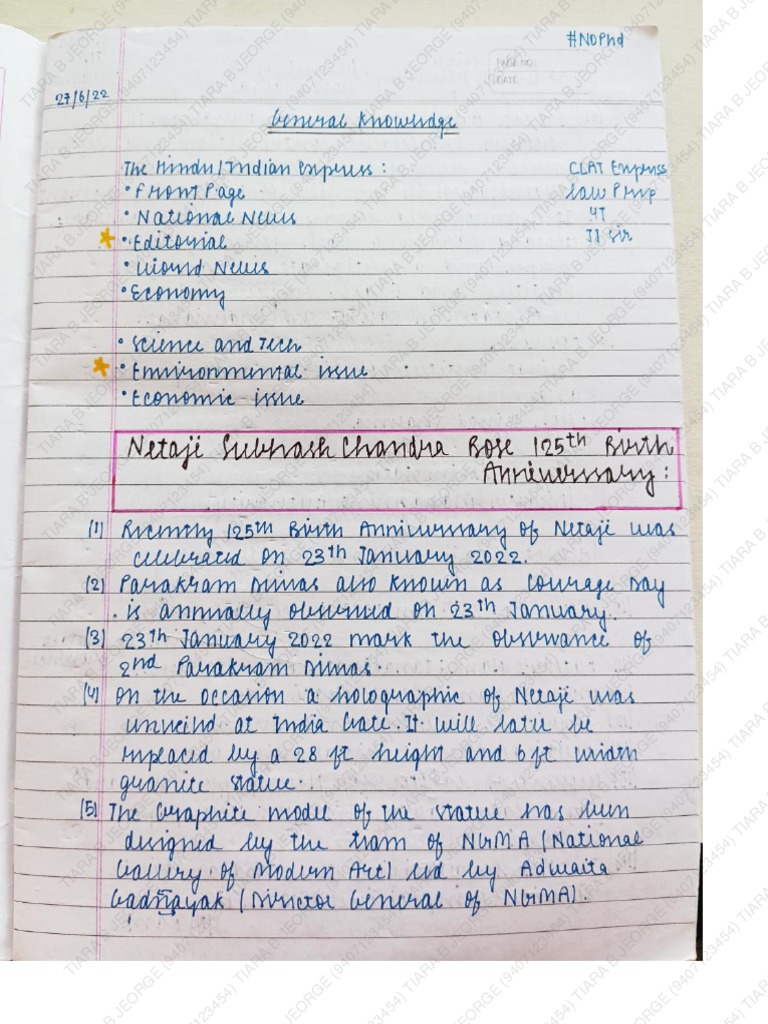 #NOPhd
PAGE NO.:
DATE:
27/6/22
General Knowledge
The Hindu/Indian Express: CLAT Express
• Front Page Law Prep
• National News YT
• Editorial JJ Sir
• World News
• Economy
• Science and Tech
• Environmental issue
• Economic issue
Netaji Subhash Chandra Bose 125th Birth
Anniversary:
(1) Recently 125th Birth Anniversary of Netaji was
celebrated on 23th January 2022.
(2) Parakram Diwas also known as Courage Day
is annually observed on 23th January.
(3) 23th January 2022 mark the observance of
2nd Parakram Diwas.
(4) On the occasion a holographic of Netaji was
unveild at India Gate. It will later be
replaced by a 28 ft height and 6 ft width
granite statue.
(5) The Graphite model of the statue has been
designed by the team of NGMA (National
Gallery of Modern Art) led by Adwaita
Gadnayak (Director General of NGMA).
TIARA B JEORGE (9407123454)